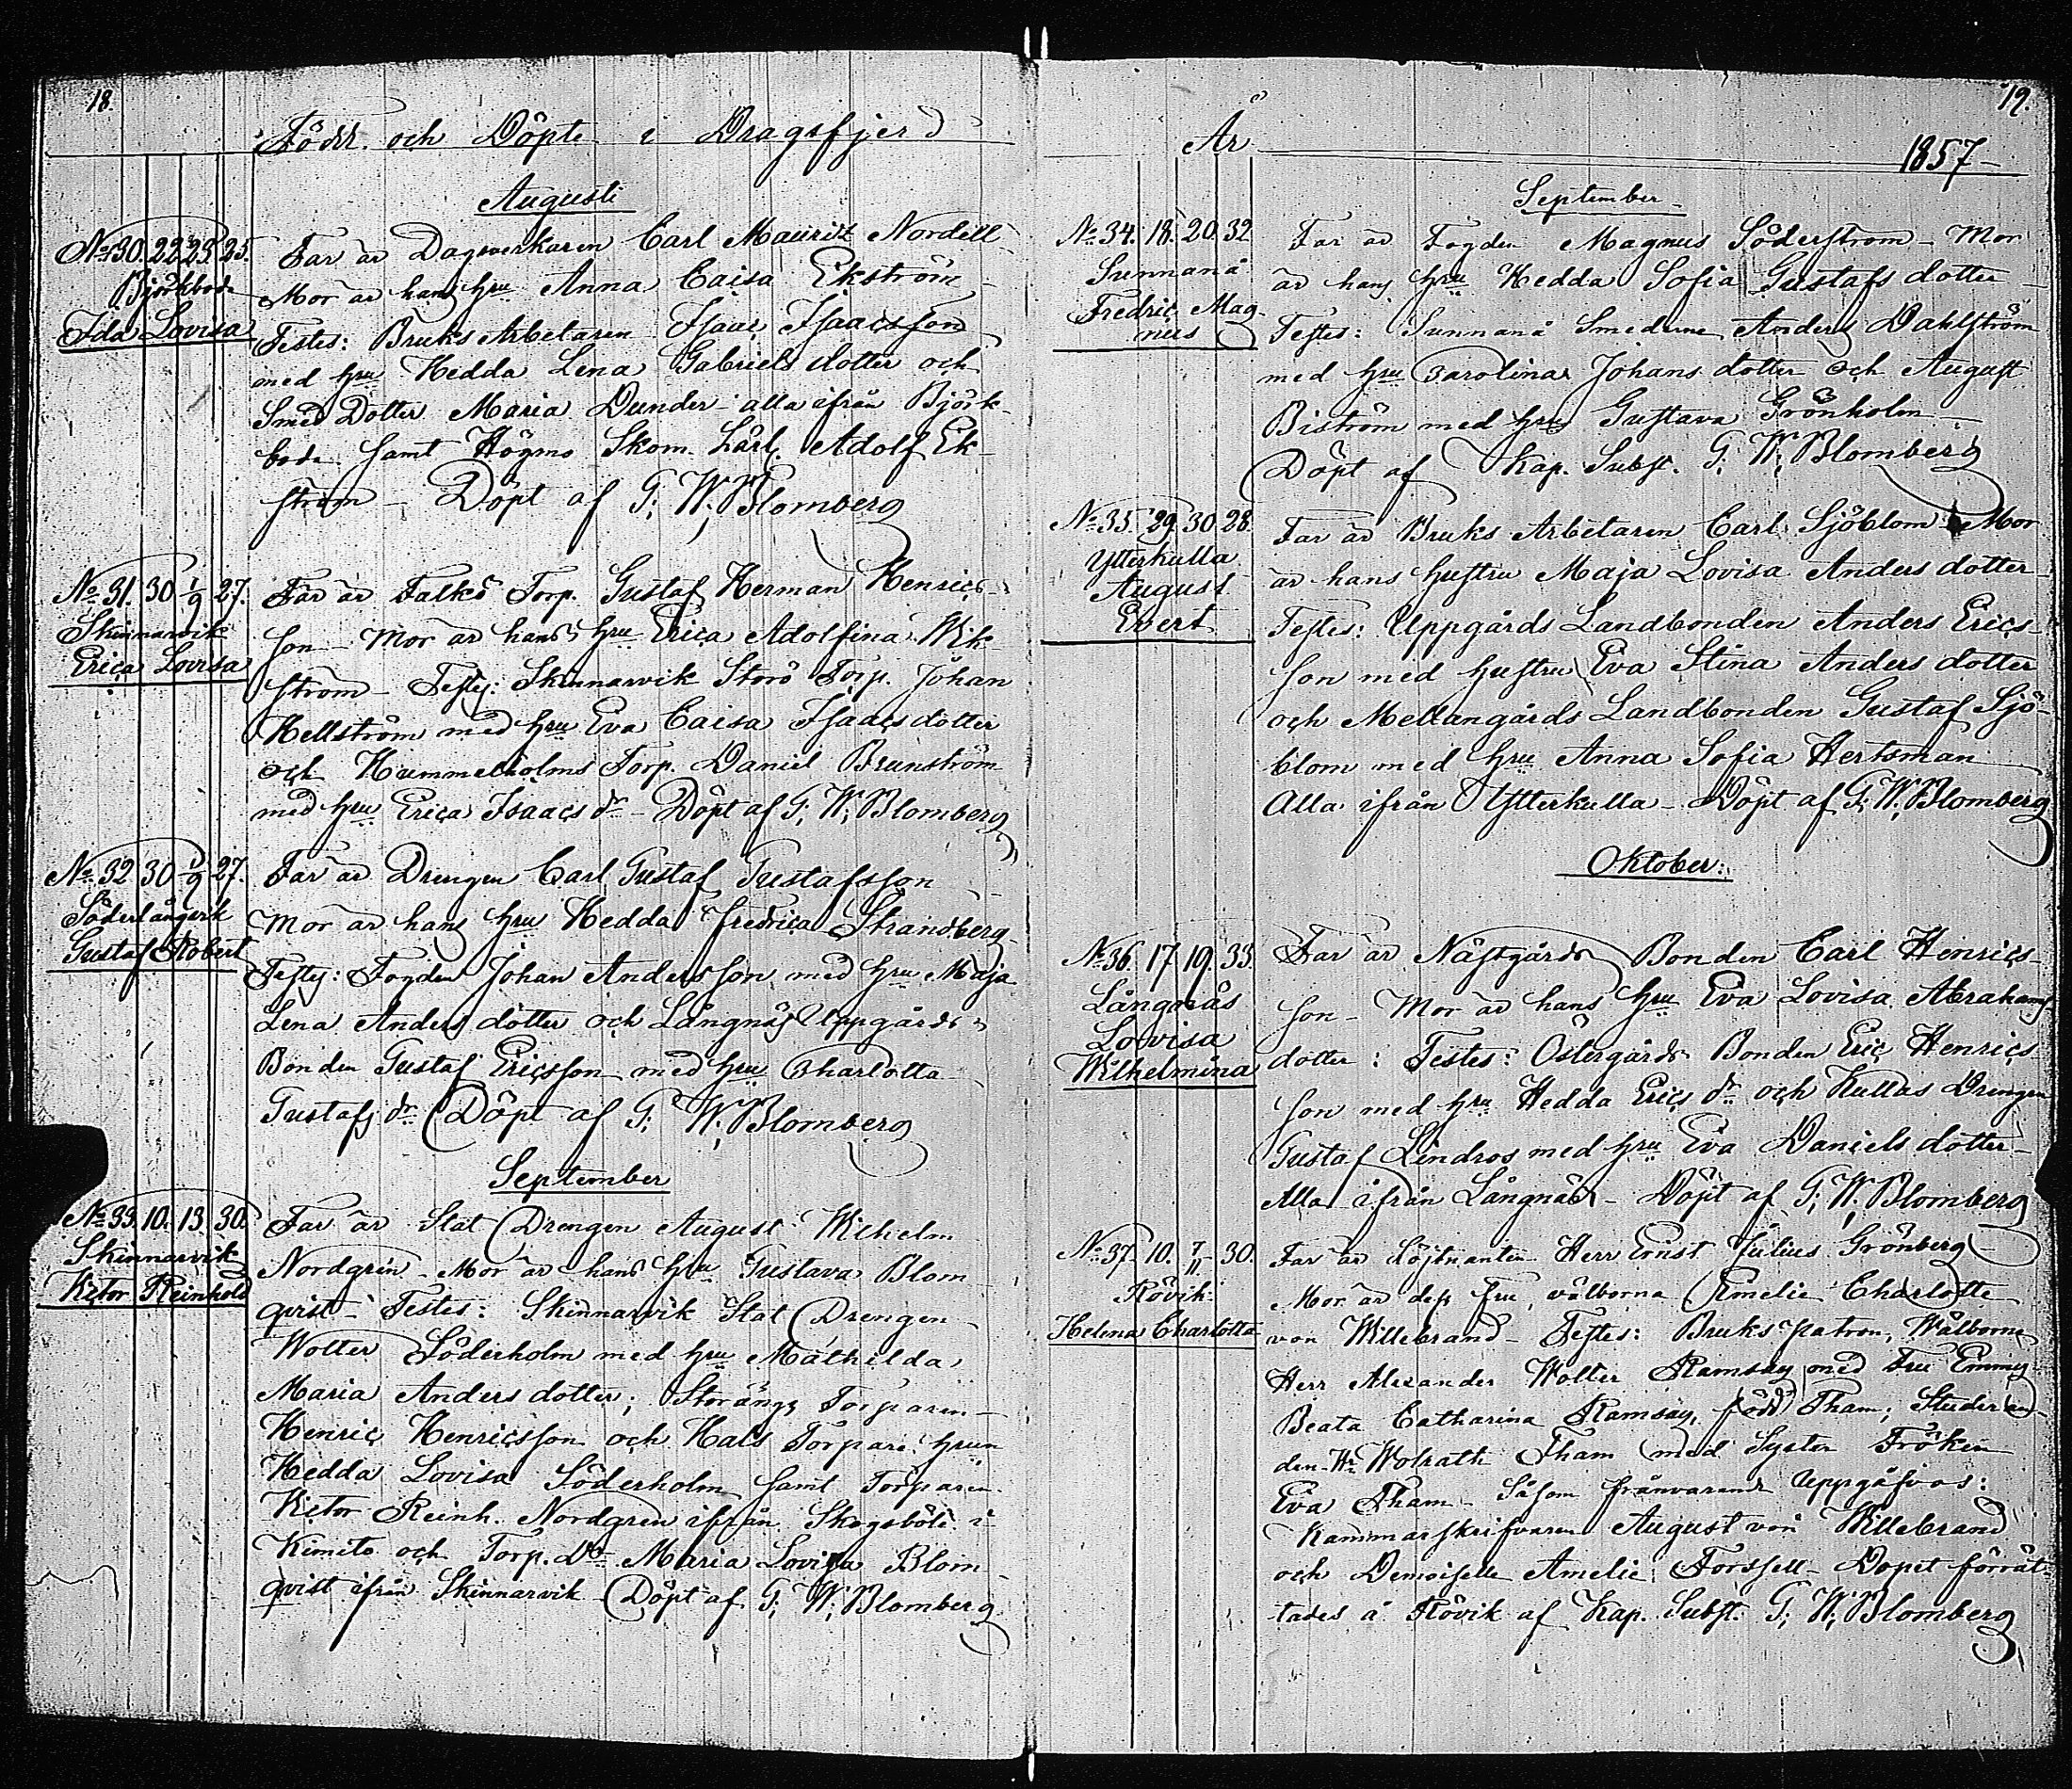 18.
Född. och Döpte i Dragsfjerd
Augusti
No 30. 22 23 25.
Björkboda
Ida Lovisa
Far är Dagsverkaren Carl Mauritz Nordell
Mor är hans hru Anna Caisa Ekström
Testes: Bruks Arbetaren Isaac Isaacsson
med hru Hedda Lena Gabriels dotter och
Smed Dotter Maria Dunder alla ifrån Björk-
boda samt Högmo Skom. Lärl. Adolf Ek-
ström – Döpt af G. W. Blomberg
No 31. 30 1/9 27.
Skinnarvik
Erica Lovisa
Far är Falkö Torp. Gustaf Herman Henrics-
son – Mor är hans hru Erica Adolfina Wik-
ström – Testes: Skinnarvik Storö Torp. Johan
Hellström med hru Eva Caisa Isaacs dotter
och Hummelholms Torp. Daniel Brunström
med hru Erica Isaacs dr – Döpt af G. W. Blomberg
No 32 30 1/9 27.
Söderlångvik
Gustaf Robert
Far är Drengen Carl Gustaf Gustafsson
Mor är hans hru Hedda Fredrica Strandberg
Testes: Fogden Johan Andersson med hru Maja
Lena Anders dotter och Långnäs Uppgårds
Bonden Gustaf Ericsson med hru Charlotta
Gustafs dr Döpt af G. W. Blomberg
September
No 33. 10. 13. 30.
Skinnarvik
Victor Reinhold
Far är Stat Drengen August Wilhelm
Nordgren – Mor är hans hru Gustava Blom-
qvist – Testes: Skinnarvik Stat Drengen
Wolter Söderholm med hru Mathilda
Maria Anders dotter; Storängs Torparen
Henric Henricsson och Hals Torpare hrun
Hedda Lovisa Söderholm samt Torparen
Victor Reinh. Nordgren ifrån Skogsböle i
Kimito och Torp. Dr Maria Lovisa Blom-
qvist ifrån Skinnarvik – Döpt af G. W. Blomberg
19
År
1857
September
No 34. 18. 20. 32
Sunnanå
Fredric Mag-
nus
Far är Fogden Magnus Söderström – Mor
är hans hru Hedda Sofia Gustafs dotter
Testes: Sunnanå Smederne Anders Dahlström
med hru Carolina Johans dotter och August
Biström med hru Gustava Grönholm
Döpt af Kap. Subst. G. W. Blomberg
No 35. 29 30 28.
Ytterkulla
August
Evert
Far är Bruks Arbetaren Carl Sjöblom Mor
är hans hustru Maja Lovisa Anders dotter
Testes: Uppgårds Landbonden Anders Erics-
son med hustru Eva Stina Anders dotter
och Mellangårds Landbonden Gustaf Sjö-
blom med hru Anna Sofia Hertsman
Alla ifrån Ytterkulla – Döpt af G. W. Blomberg
Oktober:
No 36. 17 19. 33.
Långnäs
Lovisa
Wilhelmina
Far är Nästgårds Bonden Carl Henrics-
son – Mor är hans hru Eva Lovisa Abrahams
dotter: Testes: Östergårds Bonden Eric Henrics
son med hru Hedda Erics dr och Kullas Drengen
Gustaf Lindros med hru Eva Daniels dotter
Alla ifrån Långnäs – Döpt af G. W. Blomberg
No 37. 10. 7/11 30.
Rövik
Helena Charlotta
Far är Löjtnanten Herr Ernst Julius Grönberg
Mor är dess Fru, välborna Amelie Charlotte
von Willebrand – Testes: Bruks Patron, Wälborne
Herr Alexander Wolter Ramsay med Fru Emmy
Beata Catharina Ramsay, född Tham; Studeran-
den Hr Wolrath Tham med Syster Fröken
Eva Tham – Såsom frånvarande uppgåfvos:
Kammarskrifvaren August von Willebrand
och Demoiselle Amelie Forssell – Dopet förrät-
tades å Rövik af Kap. Subst. G. W. Blomberg